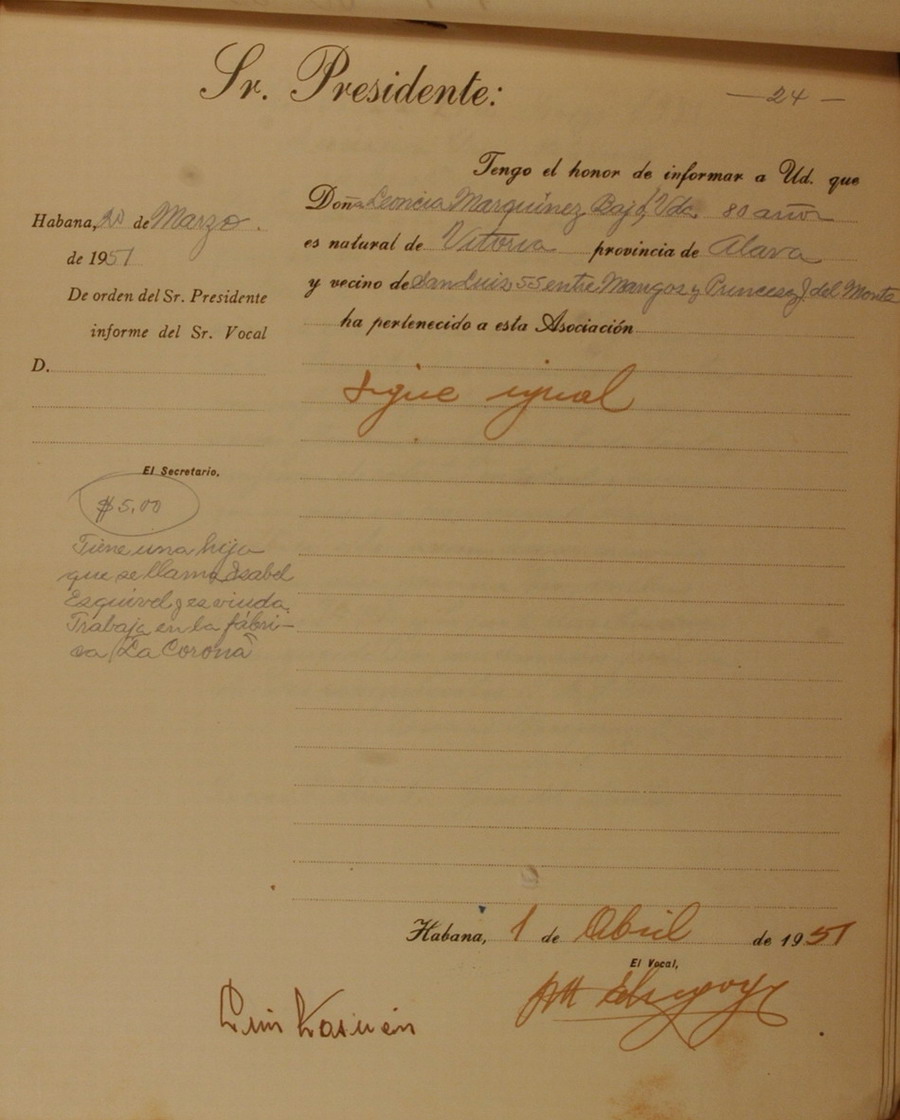 Sr. Presidente:
— 24 —
Habana, 20 de Marzo.
de 1951
De orden del Sr. Presidente
informe del Sr. Vocal
D.
El Secretario,
$5.00
Tiene una hija
que se llama Isabel
Esquivel y es viuda.
Trabaja en la fábri-
ca "La Corona"
Tengo el honor de informar a Ud. que
Doña Leoncia Marquinez Bajo, Vda. 80 años
es natural de Vitoria provincia de Alava
y vecino de San Luis 55 entre Mangos y Princesa J. del Monte
ha pertenecido a esta Asociación
Sigue igual
Habana, 1 de Abril de 1951
El Vocal,
Luis